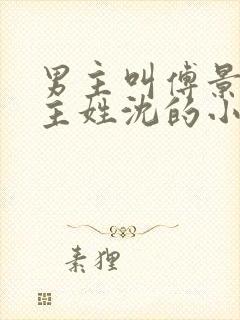 男主叫傅景
主姓沈的小
素狸